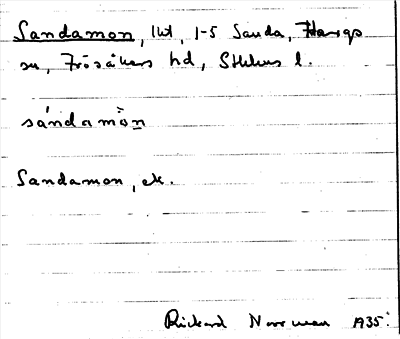 Sandamon, lht, 1-5 Sanda, Hargs
sn, Frösåkers hd, Sthlms l.
sándamö̀n
Sandamon, ek.
Rickard Norrman 1935.